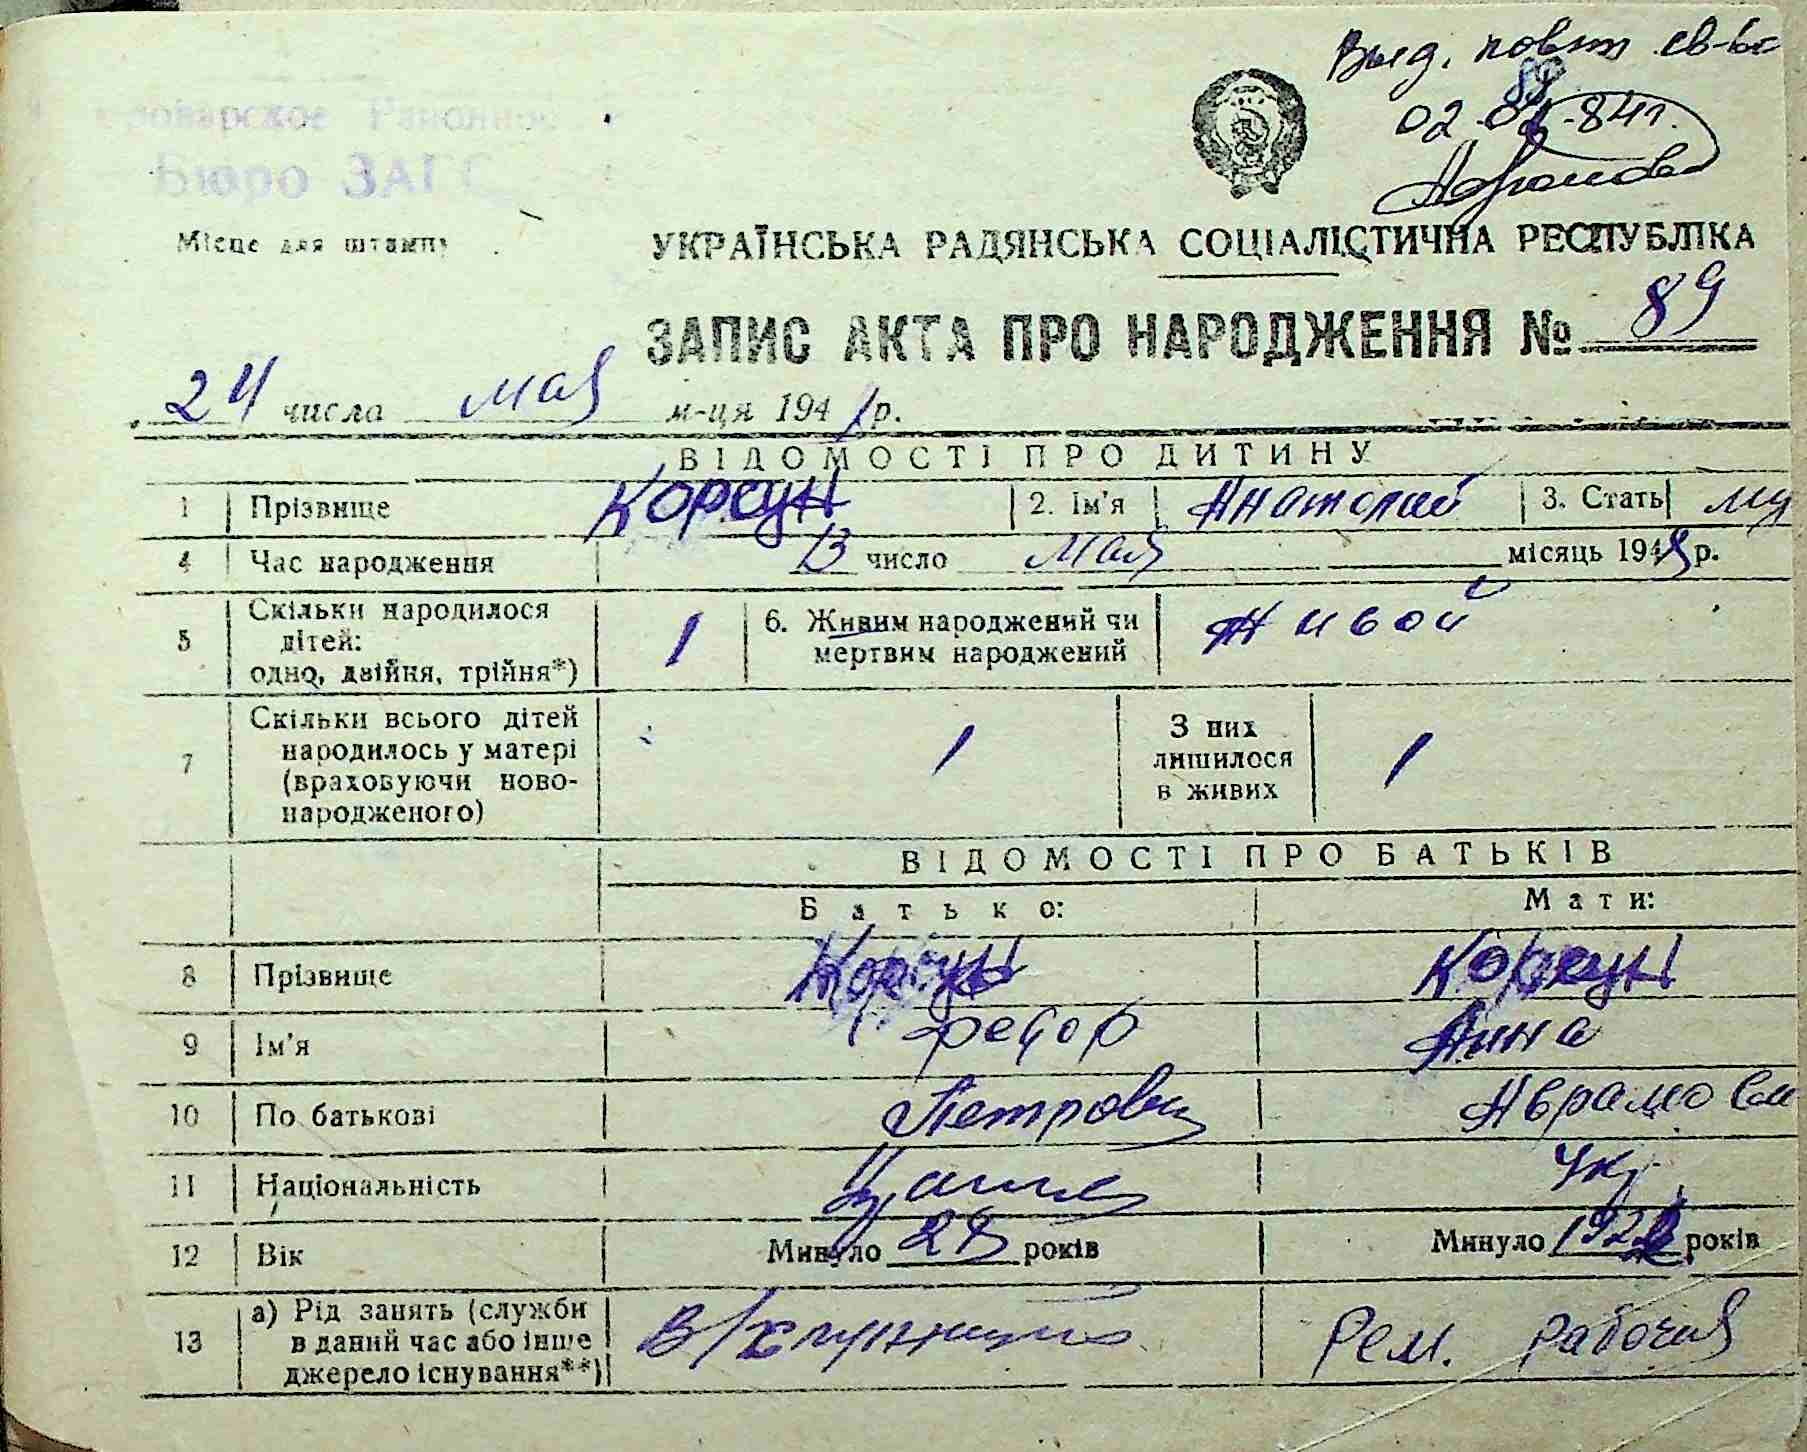 Выд. повт св-во
88
02.02.84г.
Районное
Бюро ЗАГС
Місце для штампу
УКРАЇНСЬКА РАДЯНСЬКА СОЦІАЛІСТИЧНА РЕСПУБЛІКА
ЗАПИС АКТА ПРО НАРОДЖЕННЯ № 89
24 числа мая м-ця 194 р.
ВІДОМОСТІ ПРО ДИТИНУ
1 Прізвище Корсун 2. Ім'я Анатолий 3. Стать му
4 Час народження 13 число мая місяць 194 р.
5 Скільки народилося дітей: одно, двійня, трійня*) 1 6. Живим народжений чи мертвим народжений Живой
7 Скільки всього дітей народилось у матері (враховуючи новонародженого) 1 З них лишилося в живих 1
ВІДОМОСТІ ПРО БАТЬКІВ
Батько: Мати:
8 Прізвище Корсун Корсун
9 Ім'я Федор Анна
10 По батькові Петрович Аврамовн
11 Національність Укр
12 Вік Минуло 24 років Минуло 1922 років
13 а) Рід занять (служби в даний час або інше джерело існування**) Рем. рабочая